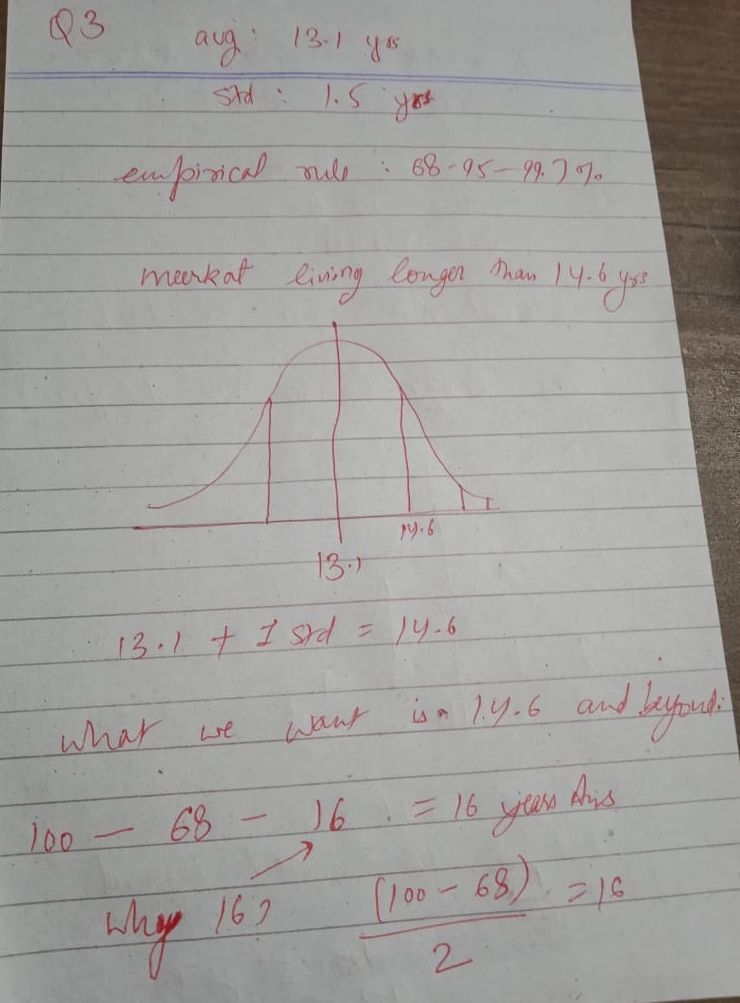 Q3
avg: 13.1 yrs
std : 1.5 yrs
empirical rule : 68-95-99.7%
meerkat living longer than 14.6 yrs
14.6
13.1
13.1 + 1 std = 14.6
What we want is 14.6 and beyond.
100 — 68 — 16 = 16 years Ans
Why 16? (100 - 68) = 16
2